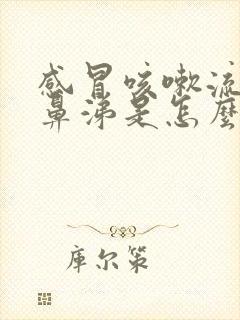 感冒咳嗽流
鼻涕是怎麼
库尔策